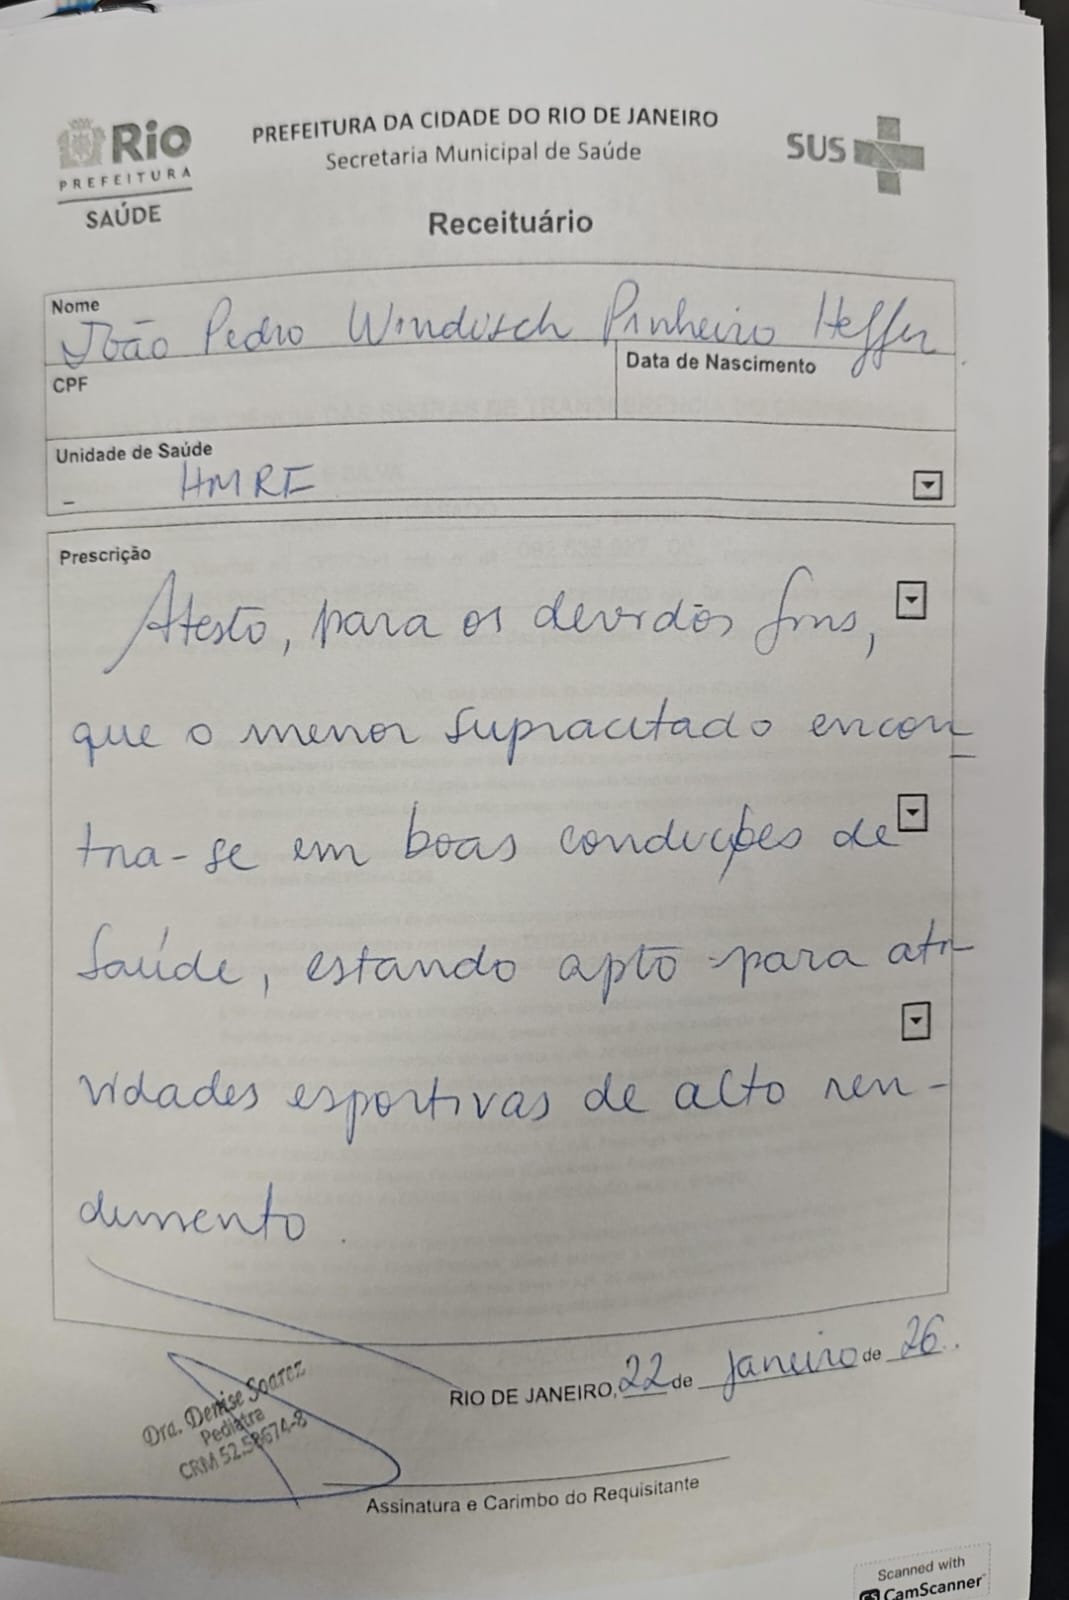 Rio
PREFEITURA
SAÚDE
PREFEITURA DA CIDADE DO RIO DE JANEIRO
Secretaria Municipal de Saúde
SUS
Receituário
Nome
João Pedro Windisch Pinheiro Heffer
CPF
Data de Nascimento
Unidade de Saúde
HMRF
Prescrição
Atesto, para os devidos fins,
que o menor supracitado encon
tra-se em boas condições de
saúde, estando apto para ati-
vidades esportivas de alto ren-
dimento.
RIO DE JANEIRO, 22 de janeiro de 26.
Dra. Denise Soarez
Pediatra
CRM 52.58674-8
Assinatura e Carimbo do Requisitante
Scanned with
CS CamScanner